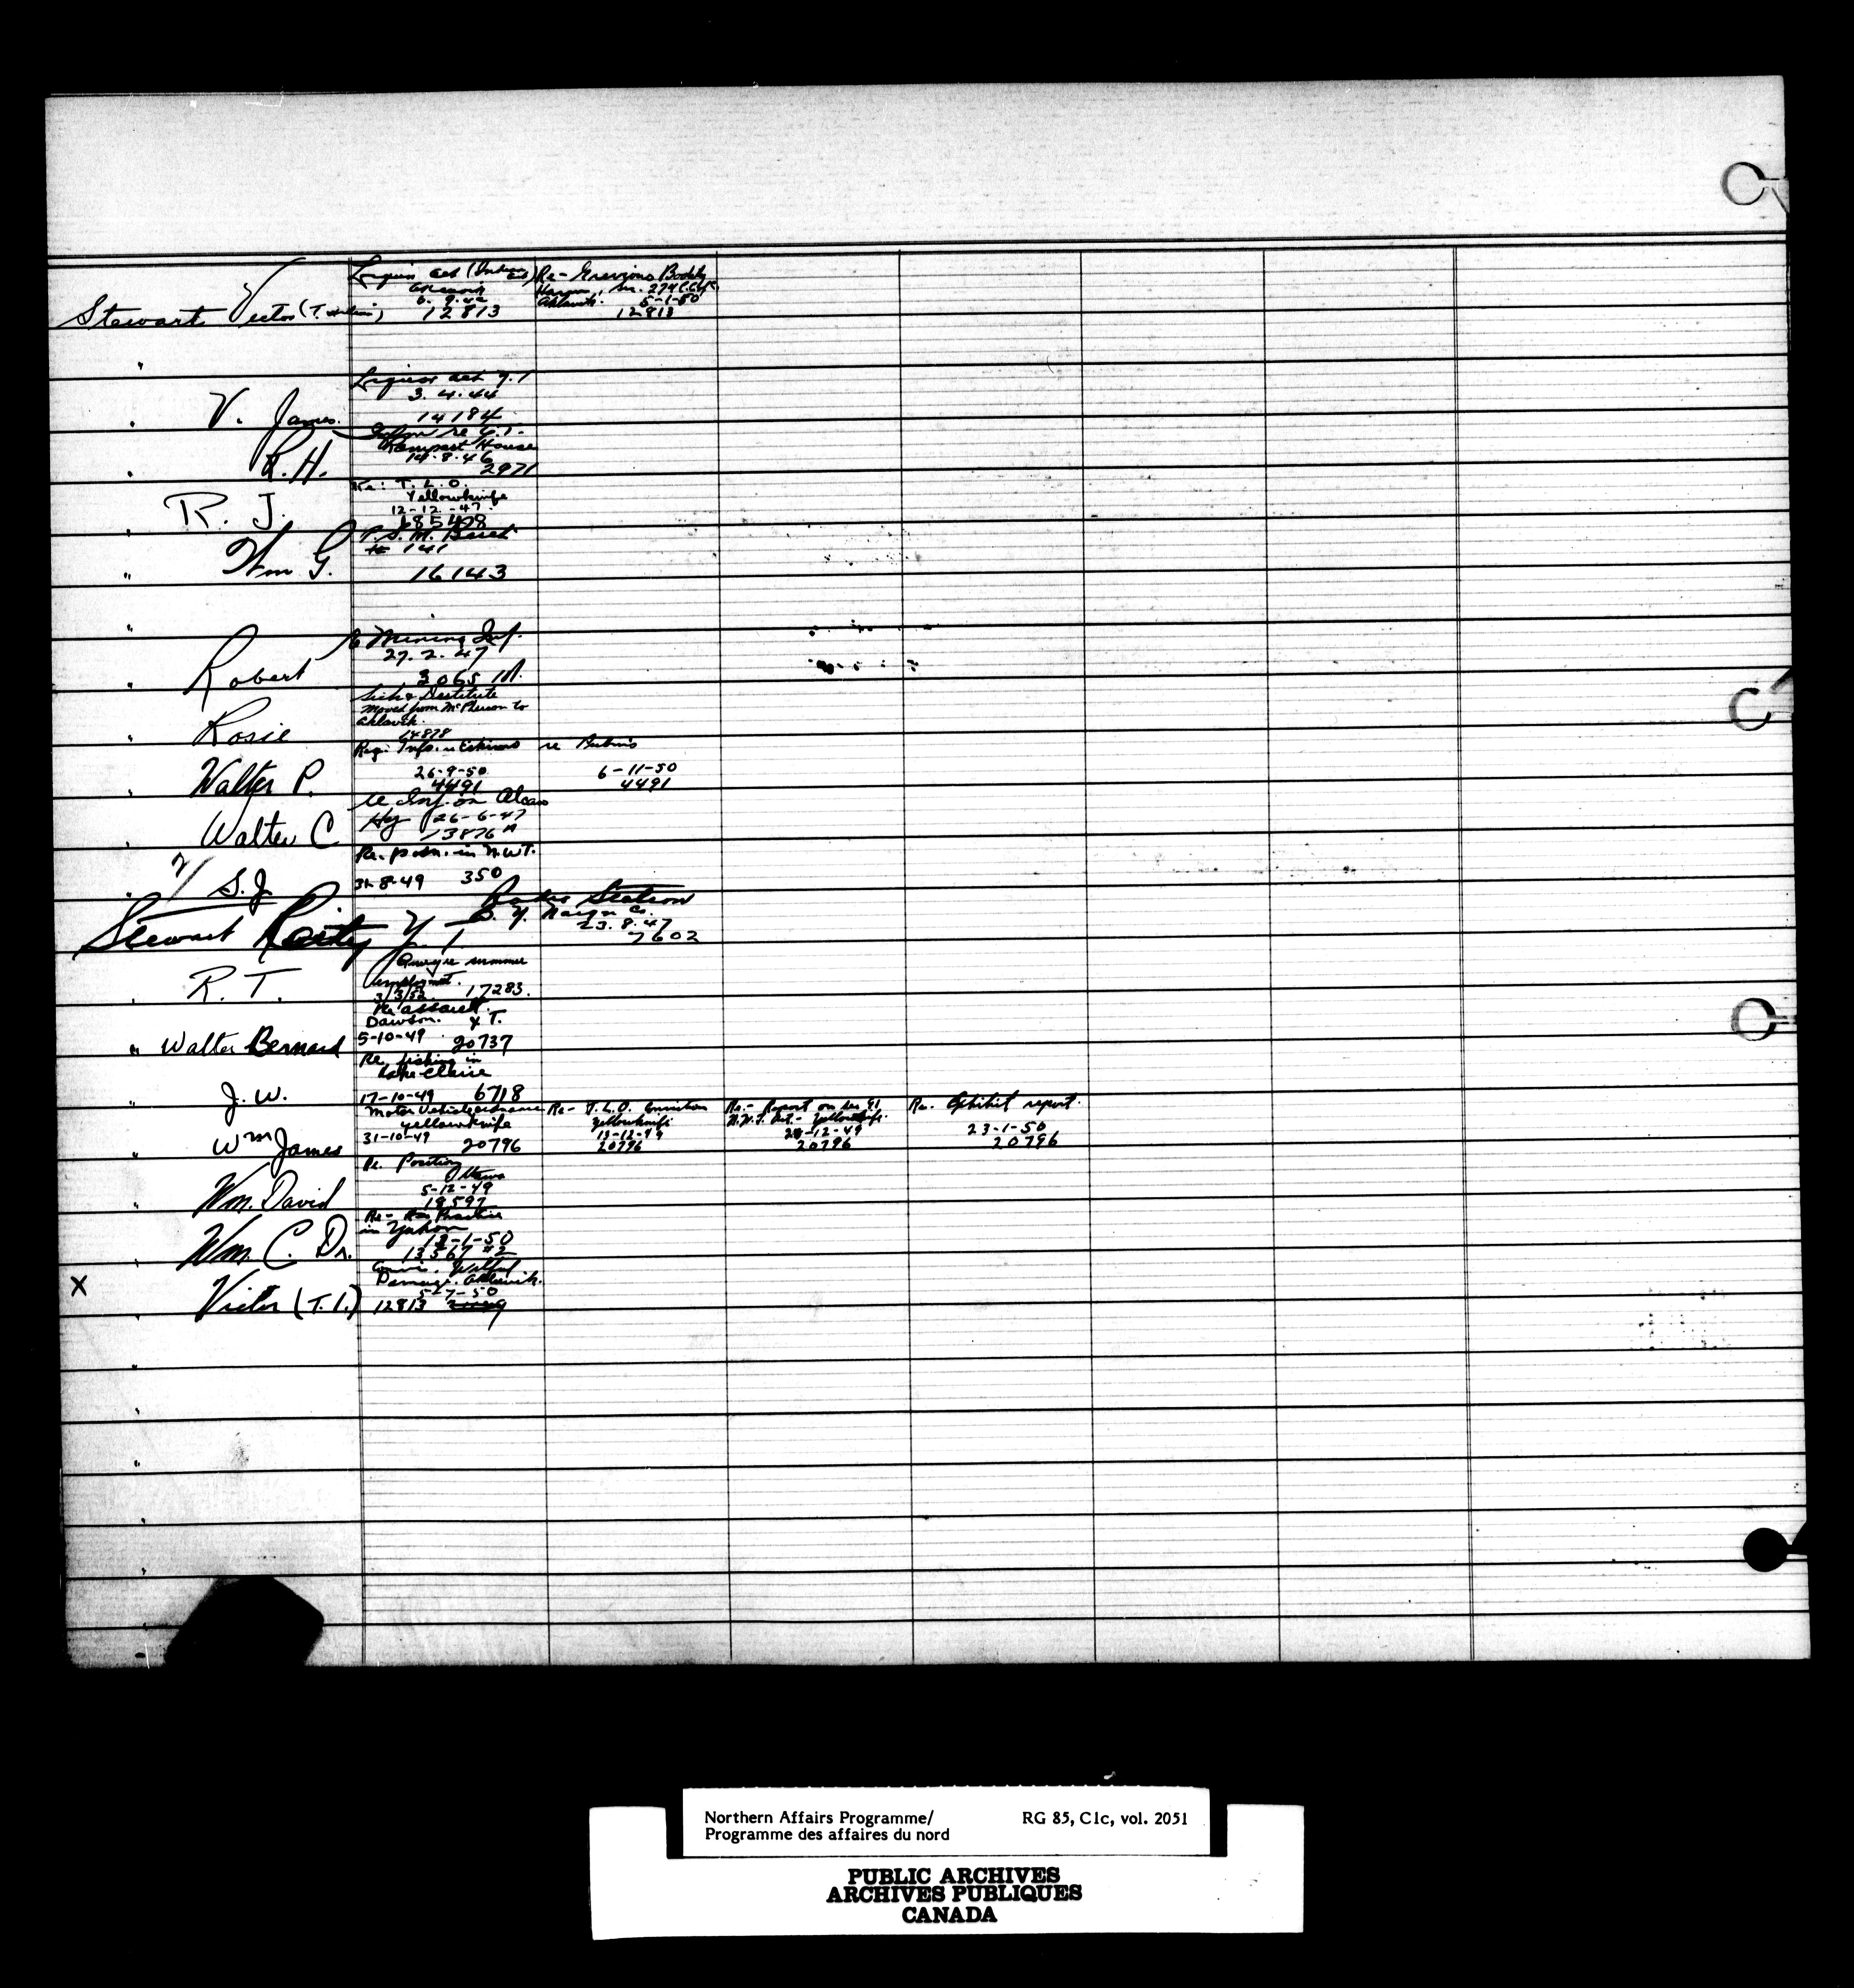 Liquor Act (Indian Act) Re- Grevious Bodily
Harm, Sec. 274 C.C.
6. 9. 42 Aklavik. 5-1-50
Stewart Victor (T. Indian) 12813 12813
"
Liquor Act Y.T
3. 4. 44
" V. James 14184
re
Rampart House
14.8.46
" R.H. 2971
Re: T. L. O.
Yellowknife
12-12-47
" R. J.
# 141
" Wm G. 16143
"
Re Mining Inf.
27. 2. 47
" Robert 3065 M.
Sick & Destitute
Moved from McPherson to
Aklavik.
" Rosie 14878
Req. Info. re Eskimos re
26-9-50 6-11-50
" Walter P. 4491 4491
re Inf. on Alcan
Hy 26-6-47
" Walter C 13876 A
Re. posn. in N.W.T.
" S.J. 31-8-49 350
Radio Station
B. Y. Co.
23.8.47
Stewart Y. T. 7602
Enquire summer
employmt.
" R. T. 3/3/52 17283.
Re assault.
Dawson. Y T.
" Walter Bernard 5-10-49 20737
Re. fishing in
Lake Claire
" J. W. 17-10-49 6718
Motor Vehicle Ordinance Re- T.L.O. Conviction Re.- Report on Sec 91 Re. Exhibit report.
Yellowknife Yellowknife N.W.T. Act - Yellowknife
31-10-49 13-12-49 29-12-49 23-1-50
" Wm James 20796 20796 20796 20796
Re. Position
Ottawa
5-12-49
" Wm. David 19597
Re- Practice
in Yukon
13-1-50
" Wm. C. Dr. 13567 #2
X Convic. Wilful
Damage. Aklavik.
5-7-50
" Victor (T. I.) 12813
"
"
"
"
"
"
Northern Affairs Programme/ RG 85, C1c, vol. 2051
Programme des affaires du nord
PUBLIC ARCHIVES
ARCHIVES PUBLIQUES
CANADA